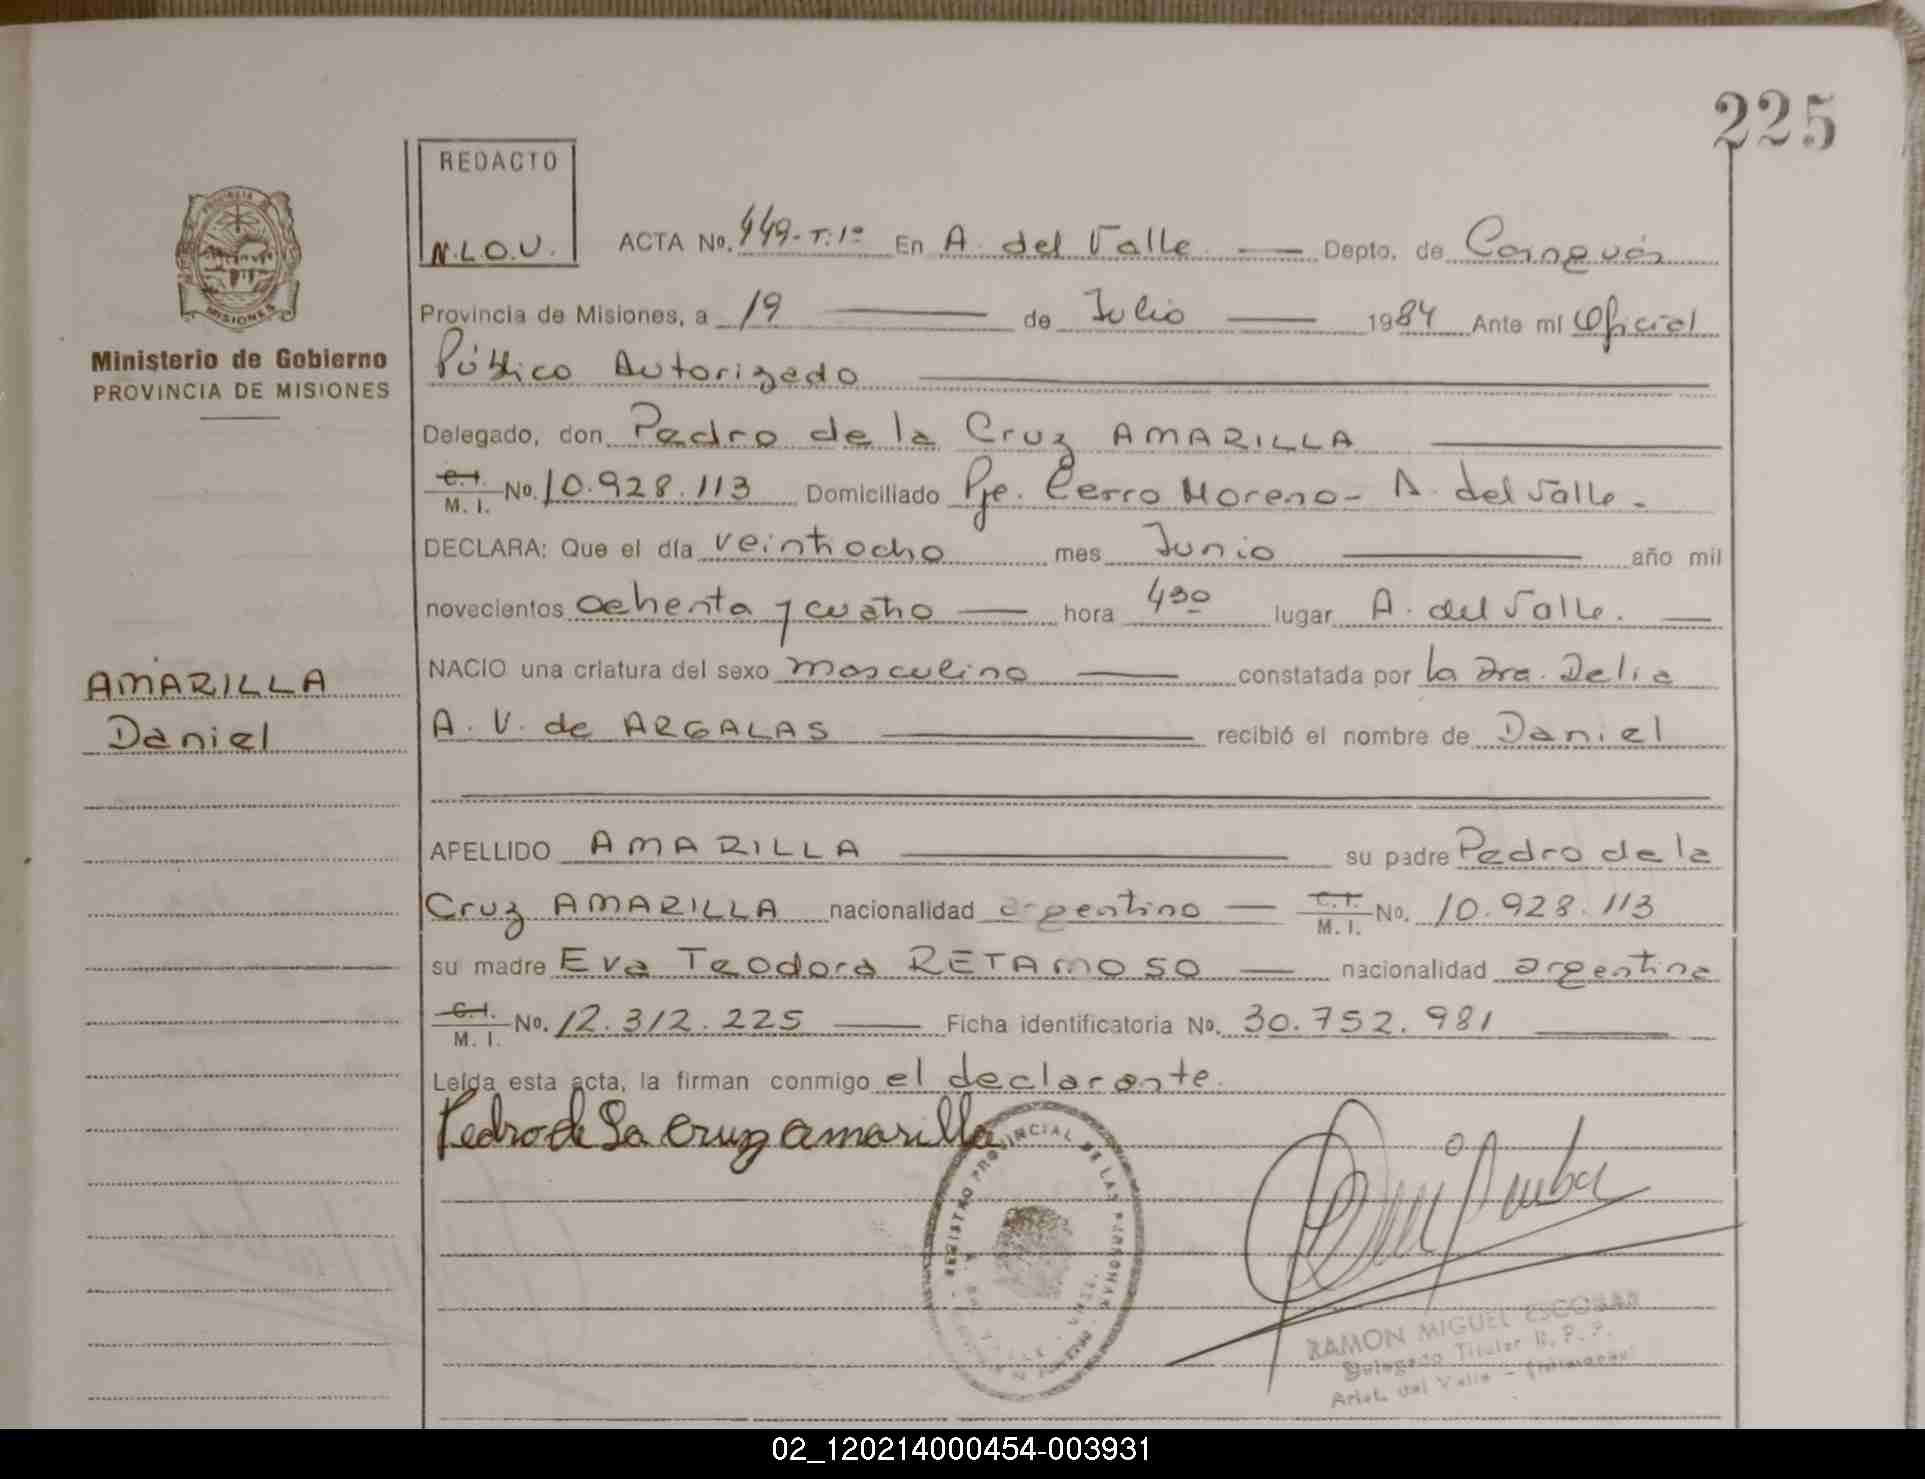 225
REDACTO
N.L.O.V.
ACTA No. 449-T.1º En A. del Valle Depto. de Cainguás
Provincia de Misiones, a 19 de Julio 1984 Ante mí Oficial
Público Autorizado
Delegado, don Pedro de la Cruz AMARILLA
C.I. M. I. No. 10.928.113 Domiciliado Pje. Cerro Moreno - A. del Valle.
DECLARA: Que el día veintiocho mes Junio año mil
novecientos ochenta y cuatro hora 4³⁰ lugar A. del Valle.
NACIO una criatura del sexo masculino constatada por la Dra. Delia
A. V. de ARGALAS recibió el nombre de Daniel
APELLIDO AMARILLA su padre Pedro de la
Cruz AMARILLA nacionalidad argentino C.I. M. I. No. 10.928.113
su madre Eva Teodora RETAMOSO nacionalidad argentina
C.I. M. I. No. 12.312.225 Ficha identificatoria No. 30.752.981
Leída esta acta, la firman conmigo el declarante.
Pedro de la cruz amarilla
PROVINCIA DE MISIONES
Ministerio de Gobierno
PROVINCIA DE MISIONES
AMARILLA
Daniel
REGISTRO PROVINCIAL DE LAS PERSONAS
RAMON MIGUEL ESCOBAR
Delegado Titular R. P. P.
Arist. del Valle - (Misiones)
02_120214000454-003931